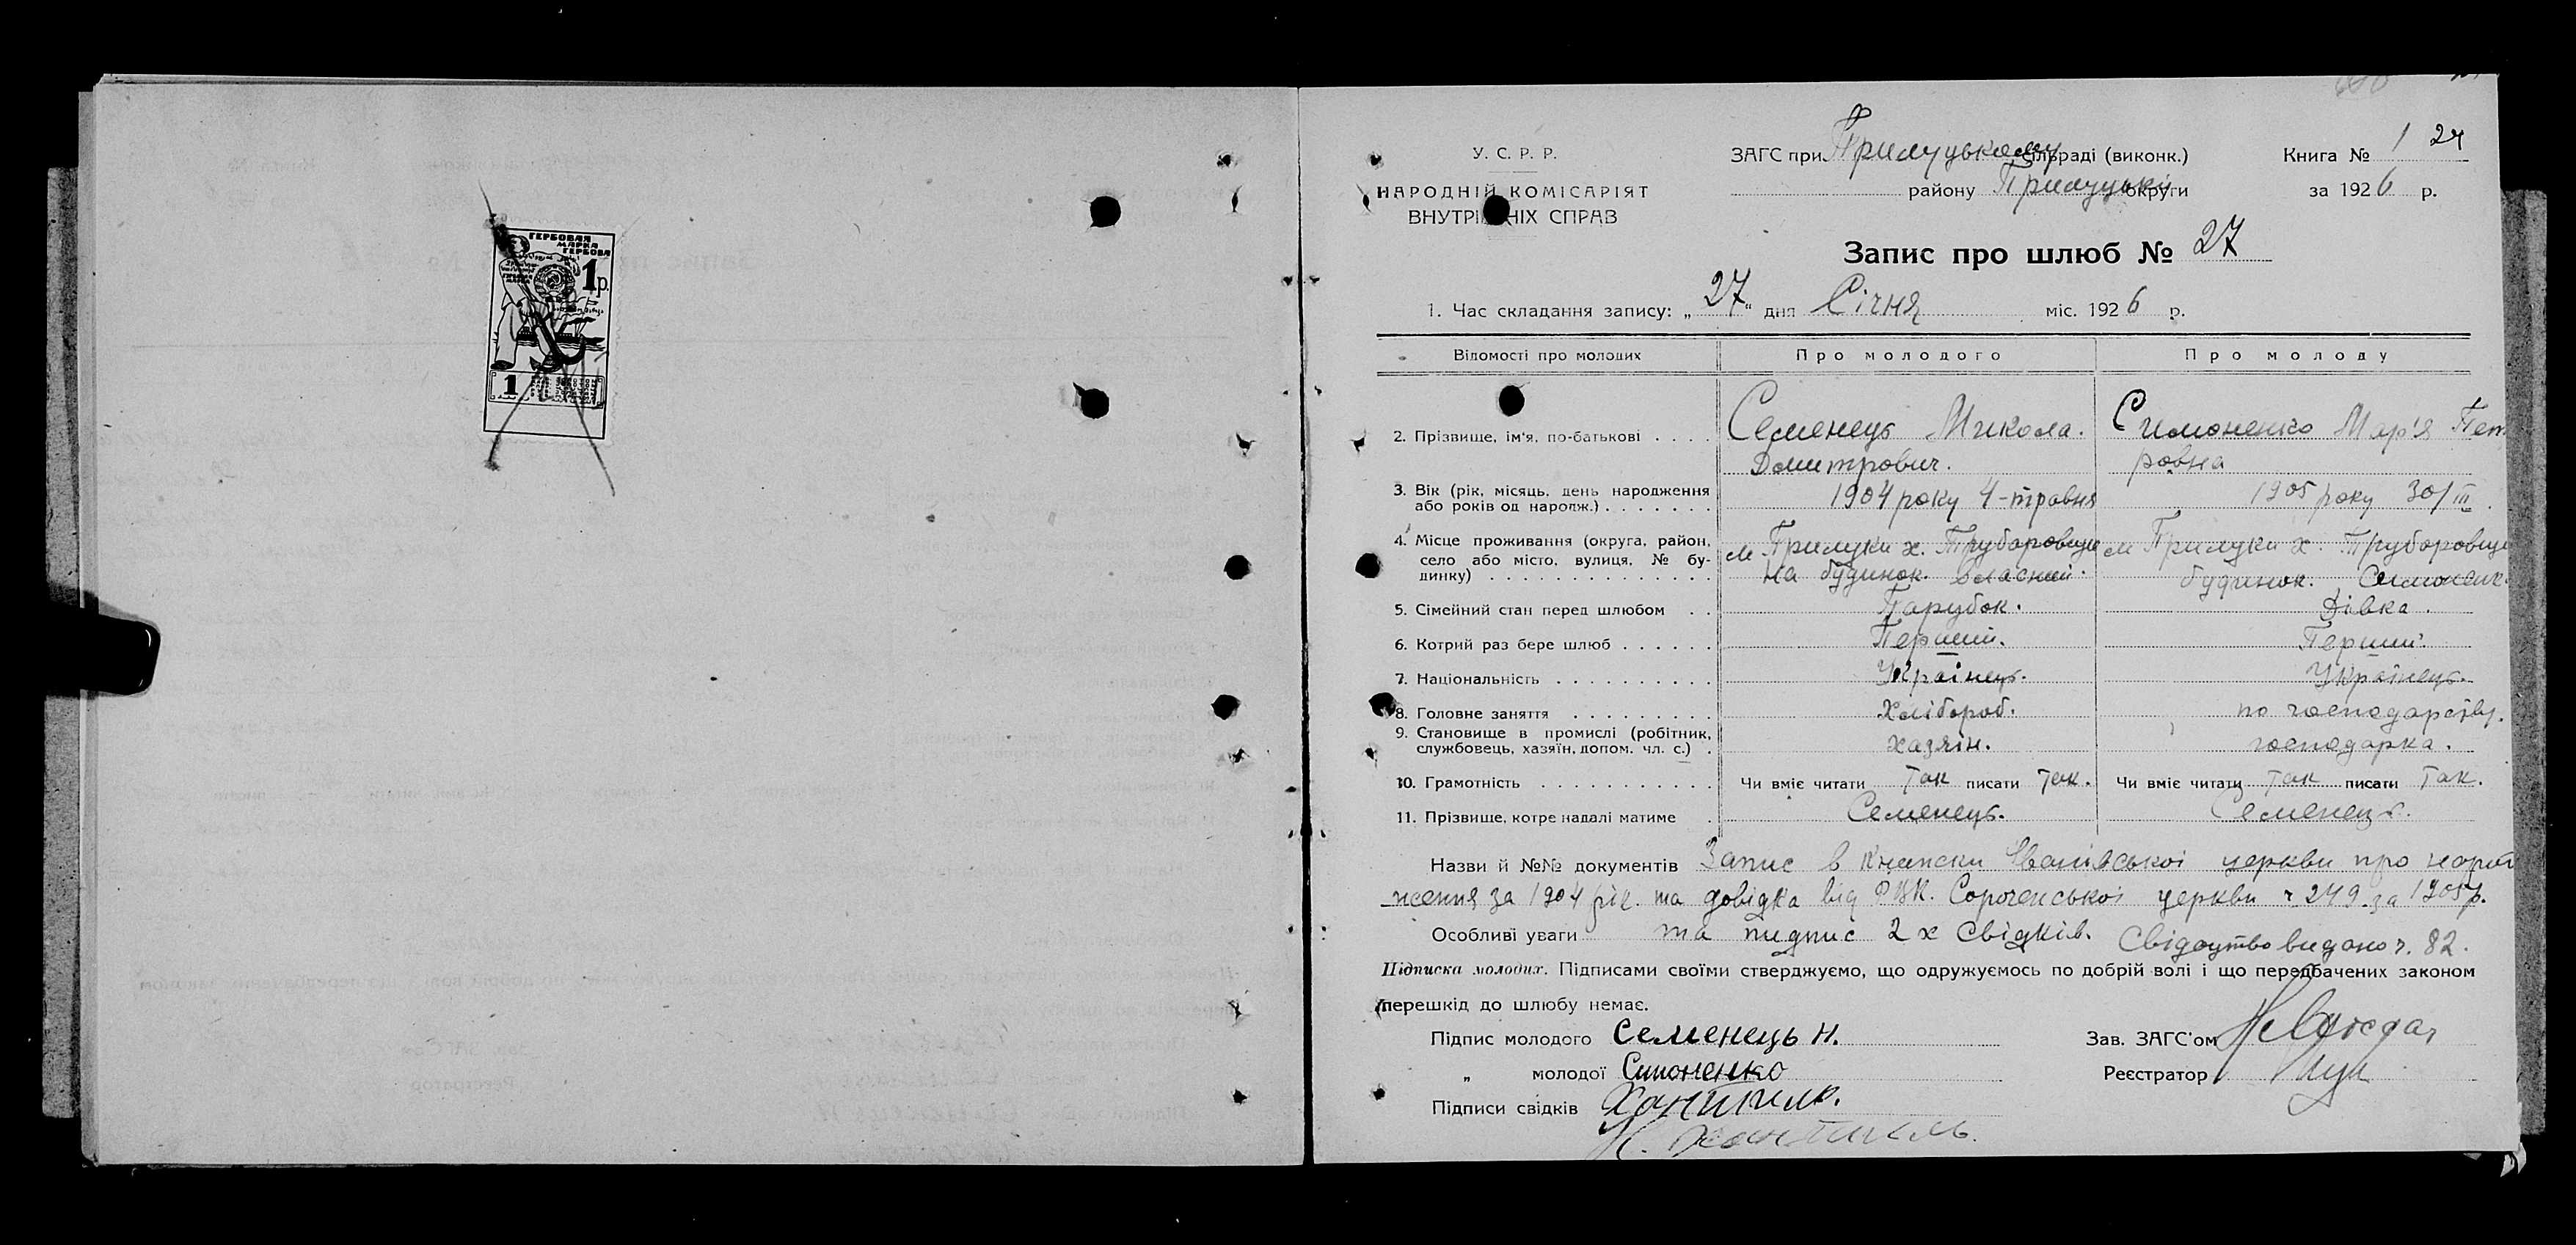 ГЕРБОВАЯ
МАРКА
ГЕРБОВА
1 р.
1
У. С. Р. Р.
НАРОДНІЙ КОМІСАРІЯТ
ВНУТРІШНІХ СПРАВ
ЗАГС при Прилуцькому сільраді (виконк.)
району Прилуцької округи
Книга № 1 24
за 1926 р.
Запис про шлюб № 27
1. Час складання запису: „27" дня Січня міс. 1926 р.
Відомості про молодих Про молодого Про молоду
2. Прізвище, ім'я, по-батькові . . . . Семенець Микола. Симоненко Мар'я Пет
Домитрович. ровна
3. Вік (рік, місяць, день народження 1904 року 4-травня 1905 року 30/III.
або років од народж.) . . . . . . .
4. Місце проживання (округа, район, м Прилуки х. Труборовщи м Прилуки х. Труборовщи
село або місто, вулиця, № бу- на будинок власний. будинок. Симоненк.
динку) . . . . . . . . . . . . . .
5. Сімейний стан перед шлюбом . . Парубок. Дівка.
6. Котрий раз бере шлюб . . . . . . Перший. Перший.
7. Національність . . . . . . . . . . Українець. Українець.
8. Головне заняття . . . . . . . . . Хлібороб. по господарству.
9. Становище в промислі (робітник,
службовець, хазяїн, допом. чл. с.) . хазяїн. господарка.
10. Грамотність . . . . . . . . . . . Чи вміє читати так писати так. Чи вміє читати так писати так.
11. Прізвище, котре надалі матиме . Семенець. Семенець.
Назви й №№ документів Запис в Іванівської церкви про народ
ження за 1904 рік. та довідка від Сороченської церкви ч. 249. за 1905 р.
Особливі уваги та пидпис 2х Свідків. Свідоцтво видано ч. 82.
Підписка молодих. Підписами своїми стверджуємо, що одружуємось по добрій волі і що передбачених законом
перешкід до шлюбу немає.
Підпис молодого Семенець Н. Зав. ЗАГС'ом
„ молодої Симоненко Реєстратор
Підписи свідків Хантиль.
Н. Хантиль.